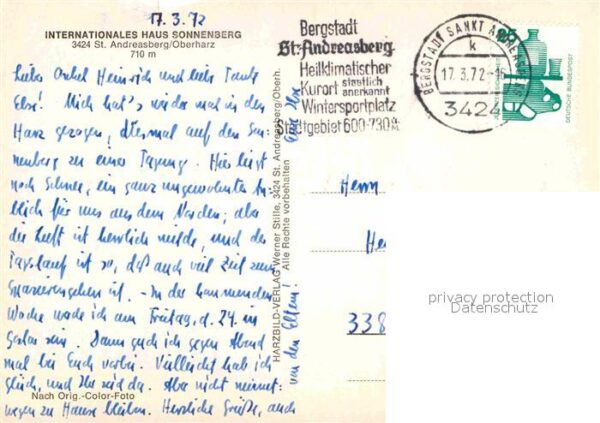 17.3.72
INTERNATIONALES HAUS SONNENBERG
3424 St. Andreasberg/Oberharz
710 m
Lieber Onkel Heinrich und liebe Tante
Else! Mich hat's wieder mal in den
Harz gezogen, diesmal auf den Son-
nenberg zu einer Tagung. Hier liegt
noch Schnee, ein ganz ungewohnter An-
blick für uns aus dem Norden; aber
die Luft ist herrlich milde, und der
Tageslauf ist so, daß auch viel Zeit zum
Spazierengehen ist. - In der kommenden
Woche werde ich am Freitag, d. 24. in
Goslar sein. Dann guck ich gegen Abend
mal bei Euch vorbei. Vielleicht hab ich
Glück, und Ihr seid da. Aber nicht meinet-
wegen zu Hause bleiben. Herzliche Grüße, auch
von den Eltern!
Eure
Nach Orig.-Color-Foto
HARZBILD-VERLAG Werner Stille, 3424 St. Andreasberg/Oberh.
Alle Rechte vorbehalten
Bergstadt
St. Andreasberg
Heilklimatischer
Kurort staatlich anerkannt
Wintersportplatz
Stadtgebiet 600-730 m
BERGSTADT SANKT ANDREASBERG
k
17.3.72
3424
25
DEUTSCHE BUNDESPOST
Herrn
He
338
privacy protection
Datenschutz